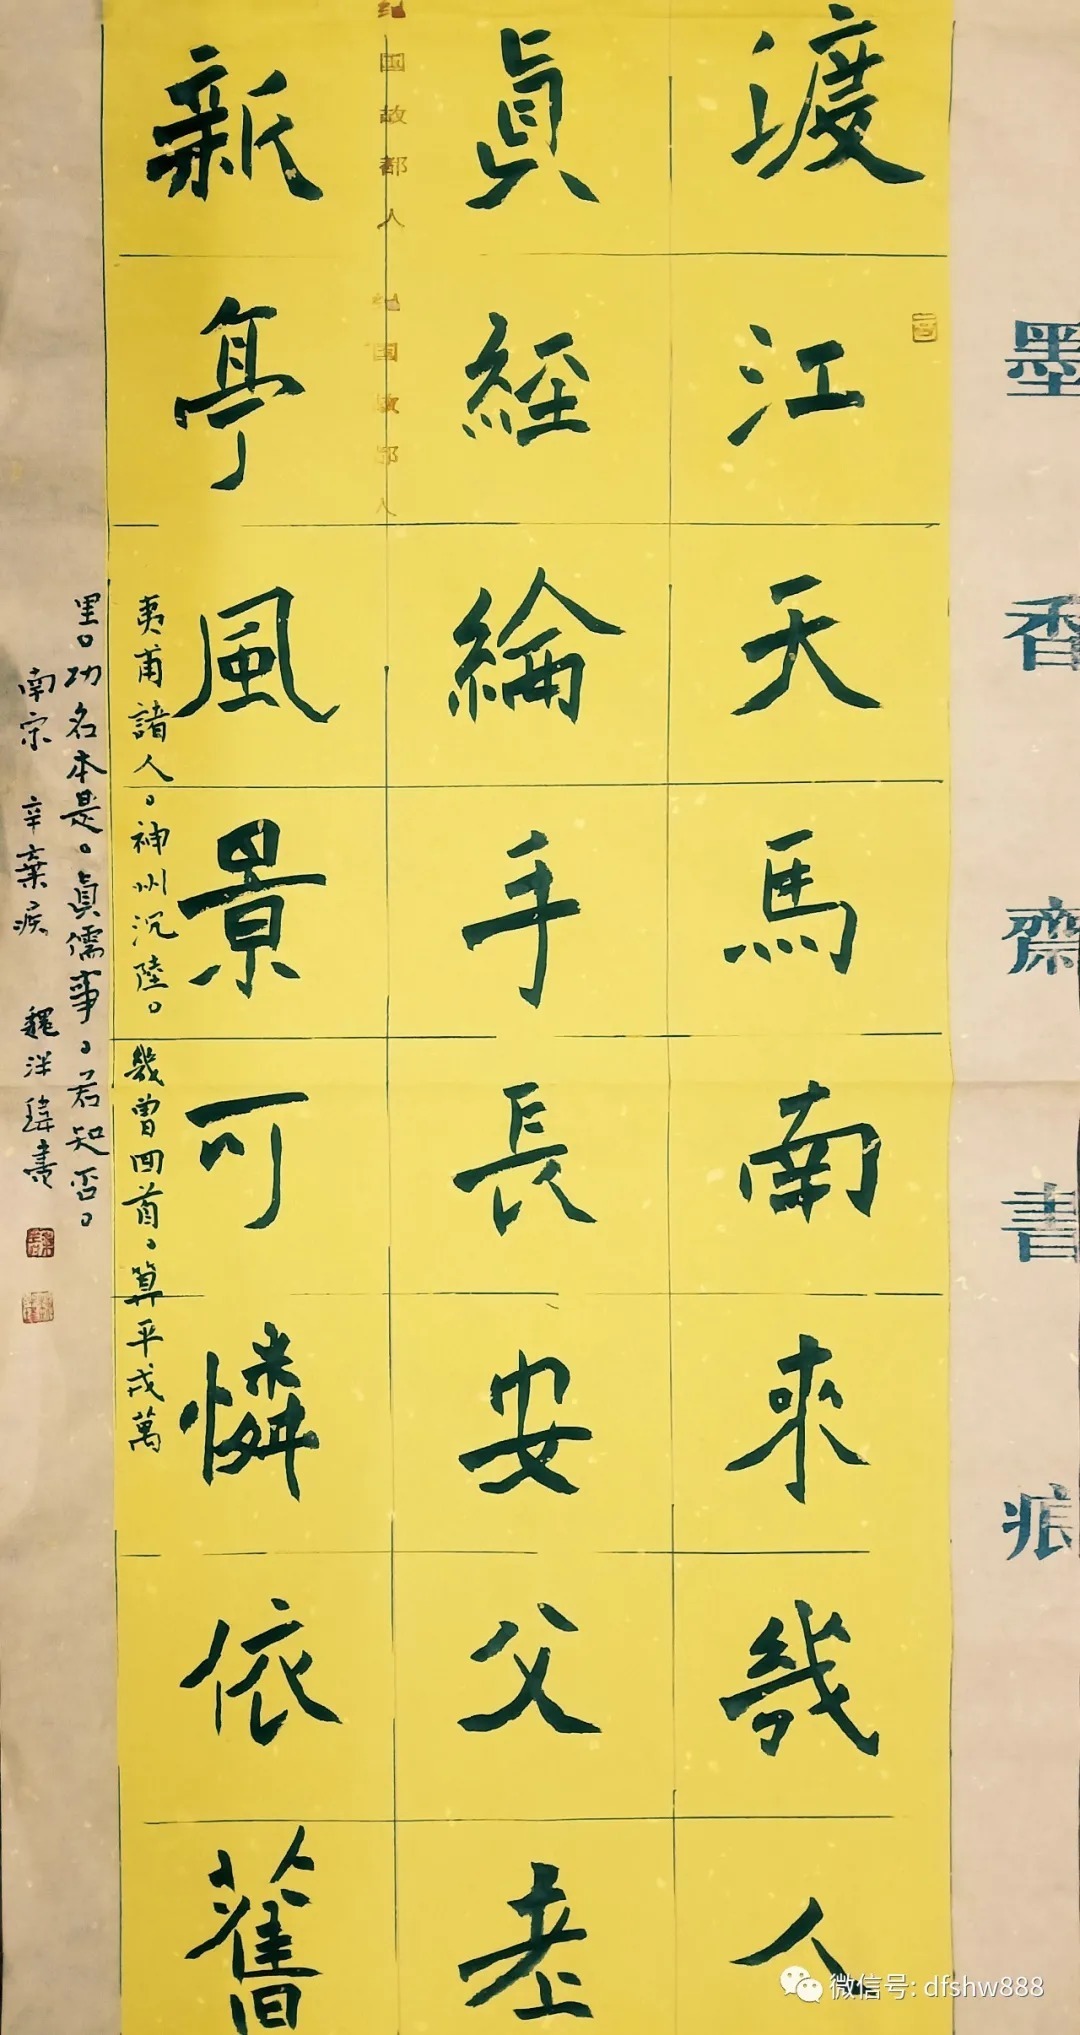 墨香齋書痕
渡江天馬南來幾人
真經綸手長安父老
新亭風景可憐依舊
夷甫諸人。神州沉陸。幾曾回首。算平戎萬
里。功名本是。真儒事。君知否。
南宋 辛棄疾 魏洋瑋書
纪国故都人 纪国故都人
微信号: dfshw888